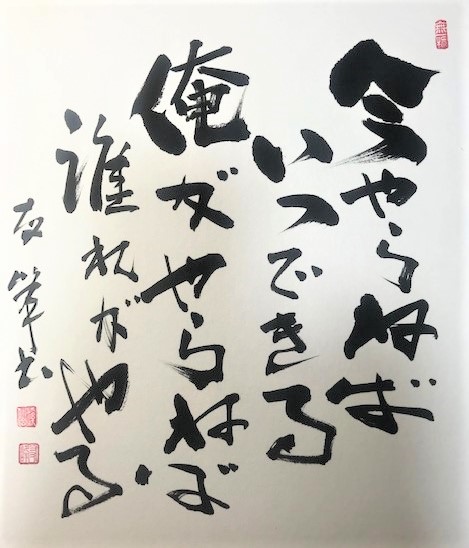 今やらねば
いつできる
俺がやらねば
誰れがやる